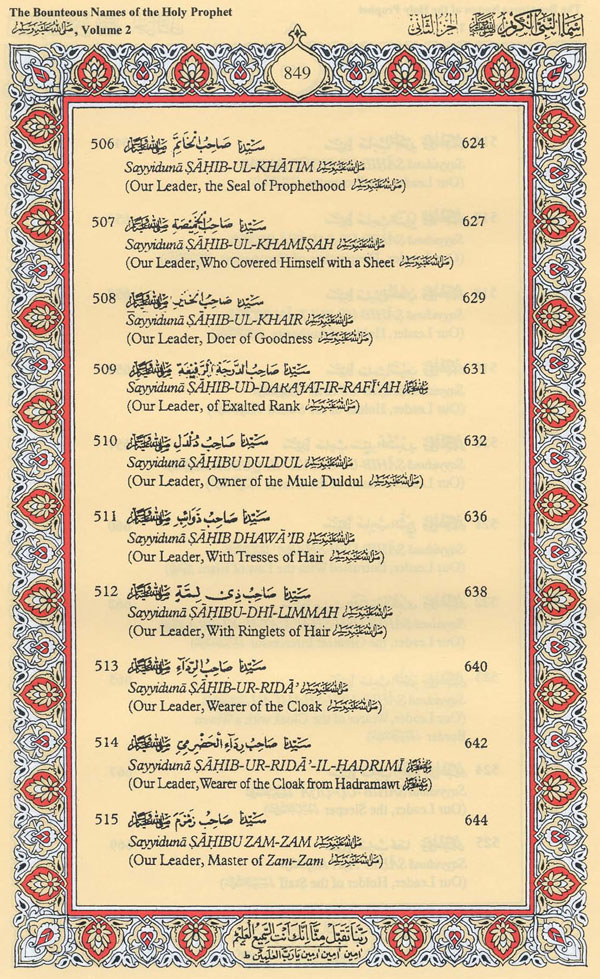 The Bounteous Names of the Holy Prophet
ﷺ, Volume 2
اسماء النبی الکریم ﷺ الجزء الثانی
849
506 سَيِّدُنَا صَاحِبُ الْخَاتَمِ ﷺ 624
Sayyidunā ṢĀḤIB-UL-KHĀTIM ﷺ
(Our Leader, the Seal of Prophethood ﷺ)
507 سَيِّدُنَا صَاحِبُ الْخَمِيْصَةِ ﷺ 627
Sayyidunā ṢĀḤIB-UL-KHAMĪṢAH ﷺ
(Our Leader, Who Covered Himself with a Sheet ﷺ)
508 سَيِّدُنَا صَاحِبُ الْخَيْرِ ﷺ 629
Sayyidunā ṢĀḤIB-UL-KHAIR ﷺ
(Our Leader, Doer of Goodness ﷺ)
509 سَيِّدُنَا صَاحِبُ الدَّرَجَةِ الرَّفِيْعَةِ ﷺ 631
Sayyidunā ṢĀḤIB-UD-DARAJAT-IR-RAFĪ'AH ﷺ
(Our Leader, of Exalted Rank ﷺ)
510 سَيِّدُنَا صَاحِبُ دُلْدُلٍ ﷺ 632
Sayyidunā ṢĀḤIBU DULDUL ﷺ
(Our Leader, Owner of the Mule Duldul ﷺ)
511 سَيِّدُنَا صَاحِبُ ذَوَائِبٍ ﷺ 636
Sayyidunā ṢĀḤIB DHAWĀ'IB ﷺ
(Our Leader, With Tresses of Hair ﷺ)
512 سَيِّدُنَا صَاحِبُ ذِىْ لِمَّةٍ ﷺ 638
Sayyidunā ṢĀḤIBU-DHĪ-LIMMAH ﷺ
(Our Leader, With Ringlets of Hair ﷺ)
513 سَيِّدُنَا صَاحِبُ الرِّدَآءِ ﷺ 640
Sayyidunā ṢĀḤIB-UR-RIDĀ' ﷺ
(Our Leader, Wearer of the Cloak ﷺ)
514 سَيِّدُنَا صَاحِبُ رِدَآءِ الْحَضْرَمِىِّ ﷺ 642
Sayyidunā ṢĀḤIB-UR-RIDĀ'-IL-ḤADRIMĪ ﷺ
(Our Leader, Wearer of the Cloak from Hadramawt ﷺ)
515 سَيِّدُنَا صَاحِبُ زَمْزَمَ ﷺ 644
Sayyidunā ṢĀḤIBU ZAM-ZAM ﷺ
(Our Leader, Master of Zam-Zam ﷺ)
رَبَّنَا تَقَبَّلْ مِنَّا اِنَّكَ اَنْتَ السَّمِيْعُ الْعَلِيْمُ
اٰمِيْن اٰمِيْن اٰمِيْن يَارَبَّ الْعٰلَمِيْنَ ط